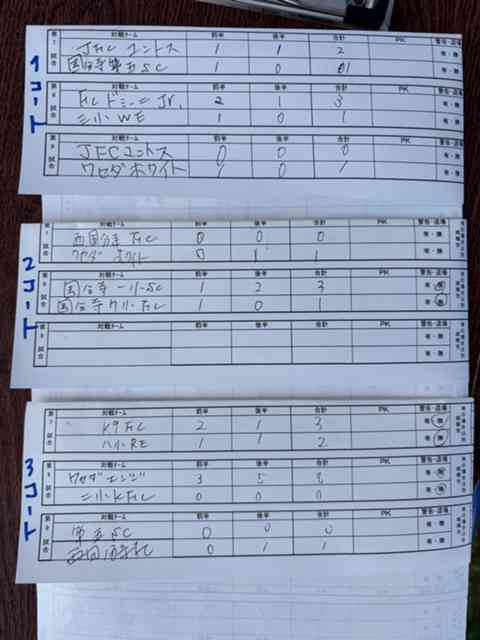 1コート
第7試合 対戦チーム 前半 後半 合計 PK 警告・退場
JFCユントス 1 1 2 有・無
国分寺第五SC 1 0 1 有・無
第8試合 対戦チーム 前半 後半 合計 PK 警告・退場
FCドミニオJr. 2 1 3 有・無
三小WE 1 0 1 有・無
第9試合 対戦チーム 前半 後半 合計 PK 警告・退場
JFCユントス 0 0 0 有・無
ワセダホワイト 1 0 1 有・無
2コート
第7試合 対戦チーム 前半 後半 合計 PK 警告・退場
西国分寺FC 0 0 0 有・無
ワセダホワイト 0 1 1 有・無
第8試合 対戦チーム 前半 後半 合計 PK 警告・退場
国分寺一小SC 1 2 3 有・無
国分寺九小FC 1 0 1 有・無
第9試合 対戦チーム 前半 後半 合計 PK 警告・退場
有・無
有・無
3コート
第7試合 対戦チーム 前半 後半 合計 PK 警告・退場
K9FC 2 1 3 有・無
八小RE 1 1 2 有・無
第8試合 対戦チーム 前半 後半 合計 PK 警告・退場
ワセダエンジ 3 5 8 有・無
二小KFC 0 0 0 有・無
第9試合 対戦チーム 前半 後半 合計 PK 警告・退場
第五SC 0 0 0 有・無
西国分寺FC 0 1 1 有・無